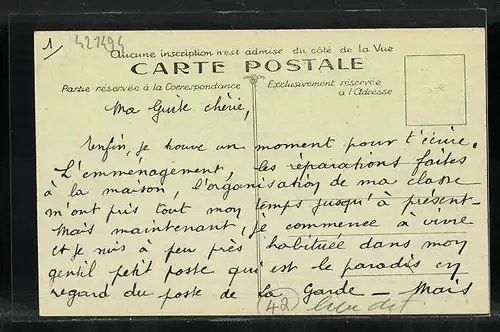 1
421494
Aucune inscription n'est admise du côté de la Vue
CARTE POSTALE
Partie réservée à la Correspondance
Exclusivement réservée
à l'Adresse
Ma chérie,
Enfin, je trouve un moment pour t'écrire.
L'emménagement, les réparations faites
à la maison, l'organisation de ma classe
m'ont pris tout mon temps jusqu'à présent-
Mais maintenant, je commence à vivre
et je suis à peu près habituée dans mon
gentil petit poste qui est le paradis en
regard du poste de la Garde - Mais
42 lieu dit